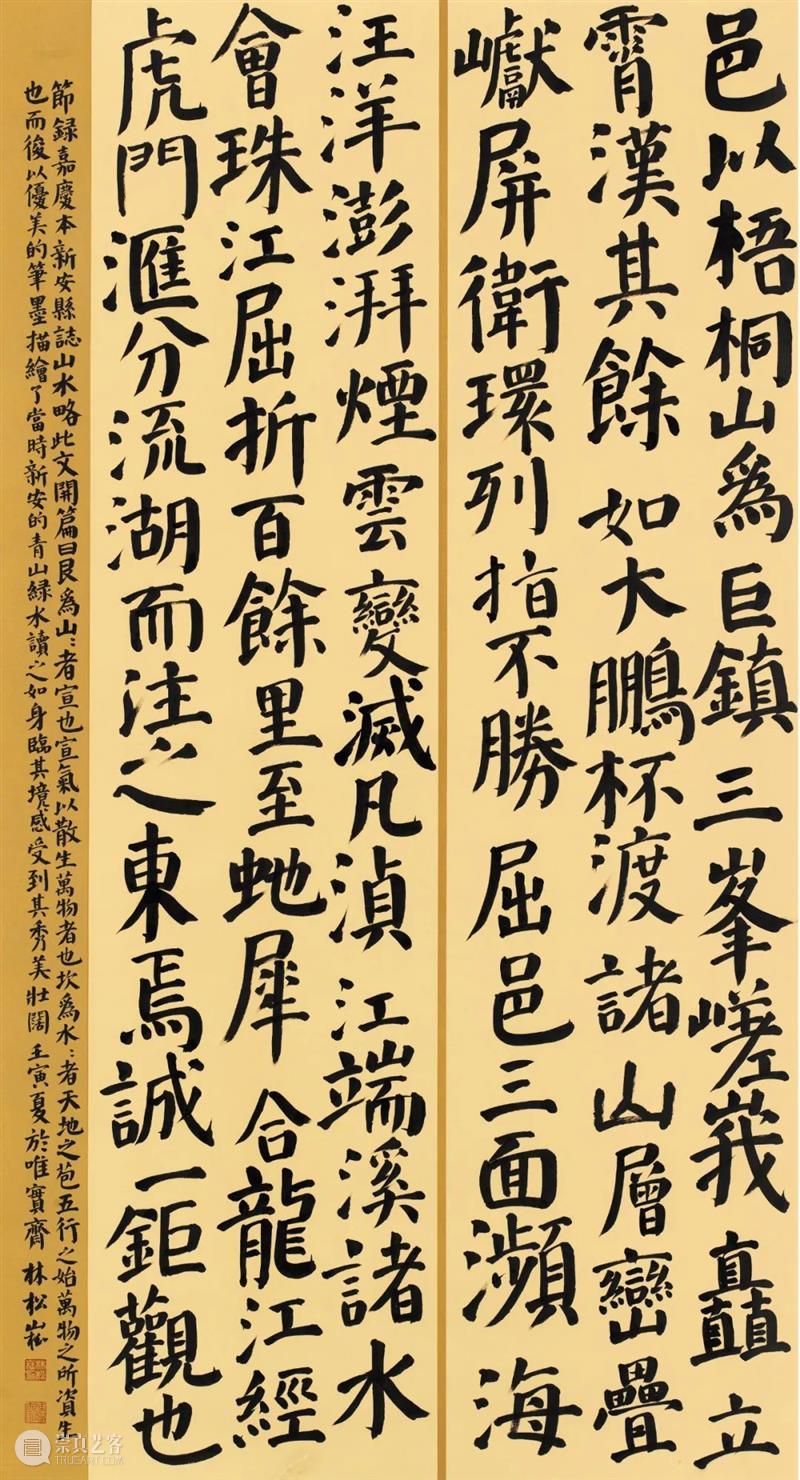 邑以梧桐山爲巨鎮三峯嵯峨矗立
霄漢其餘如大鵬杯渡諸山層巒疊
巘屏衛環列指不勝屈邑三面瀕海
汪洋澎湃煙雲變滅凡湞江端溪諸水
會珠江屈折百餘里至虵犀合龍江經
虎門滙分流湖而注之東焉誠一鉅觀也
節録嘉慶本新安縣誌山水略此文開篇曰艮爲山〻者宣也宣氣以散生萬物者也坎爲水〻者天地之苞五行之始萬物之所資生
也而後以優美的筆墨描繪了當時新安的青山緑水讀之如身臨其境感受到其秀美壯闊壬寅夏於唯實齋林松
崇真艺客